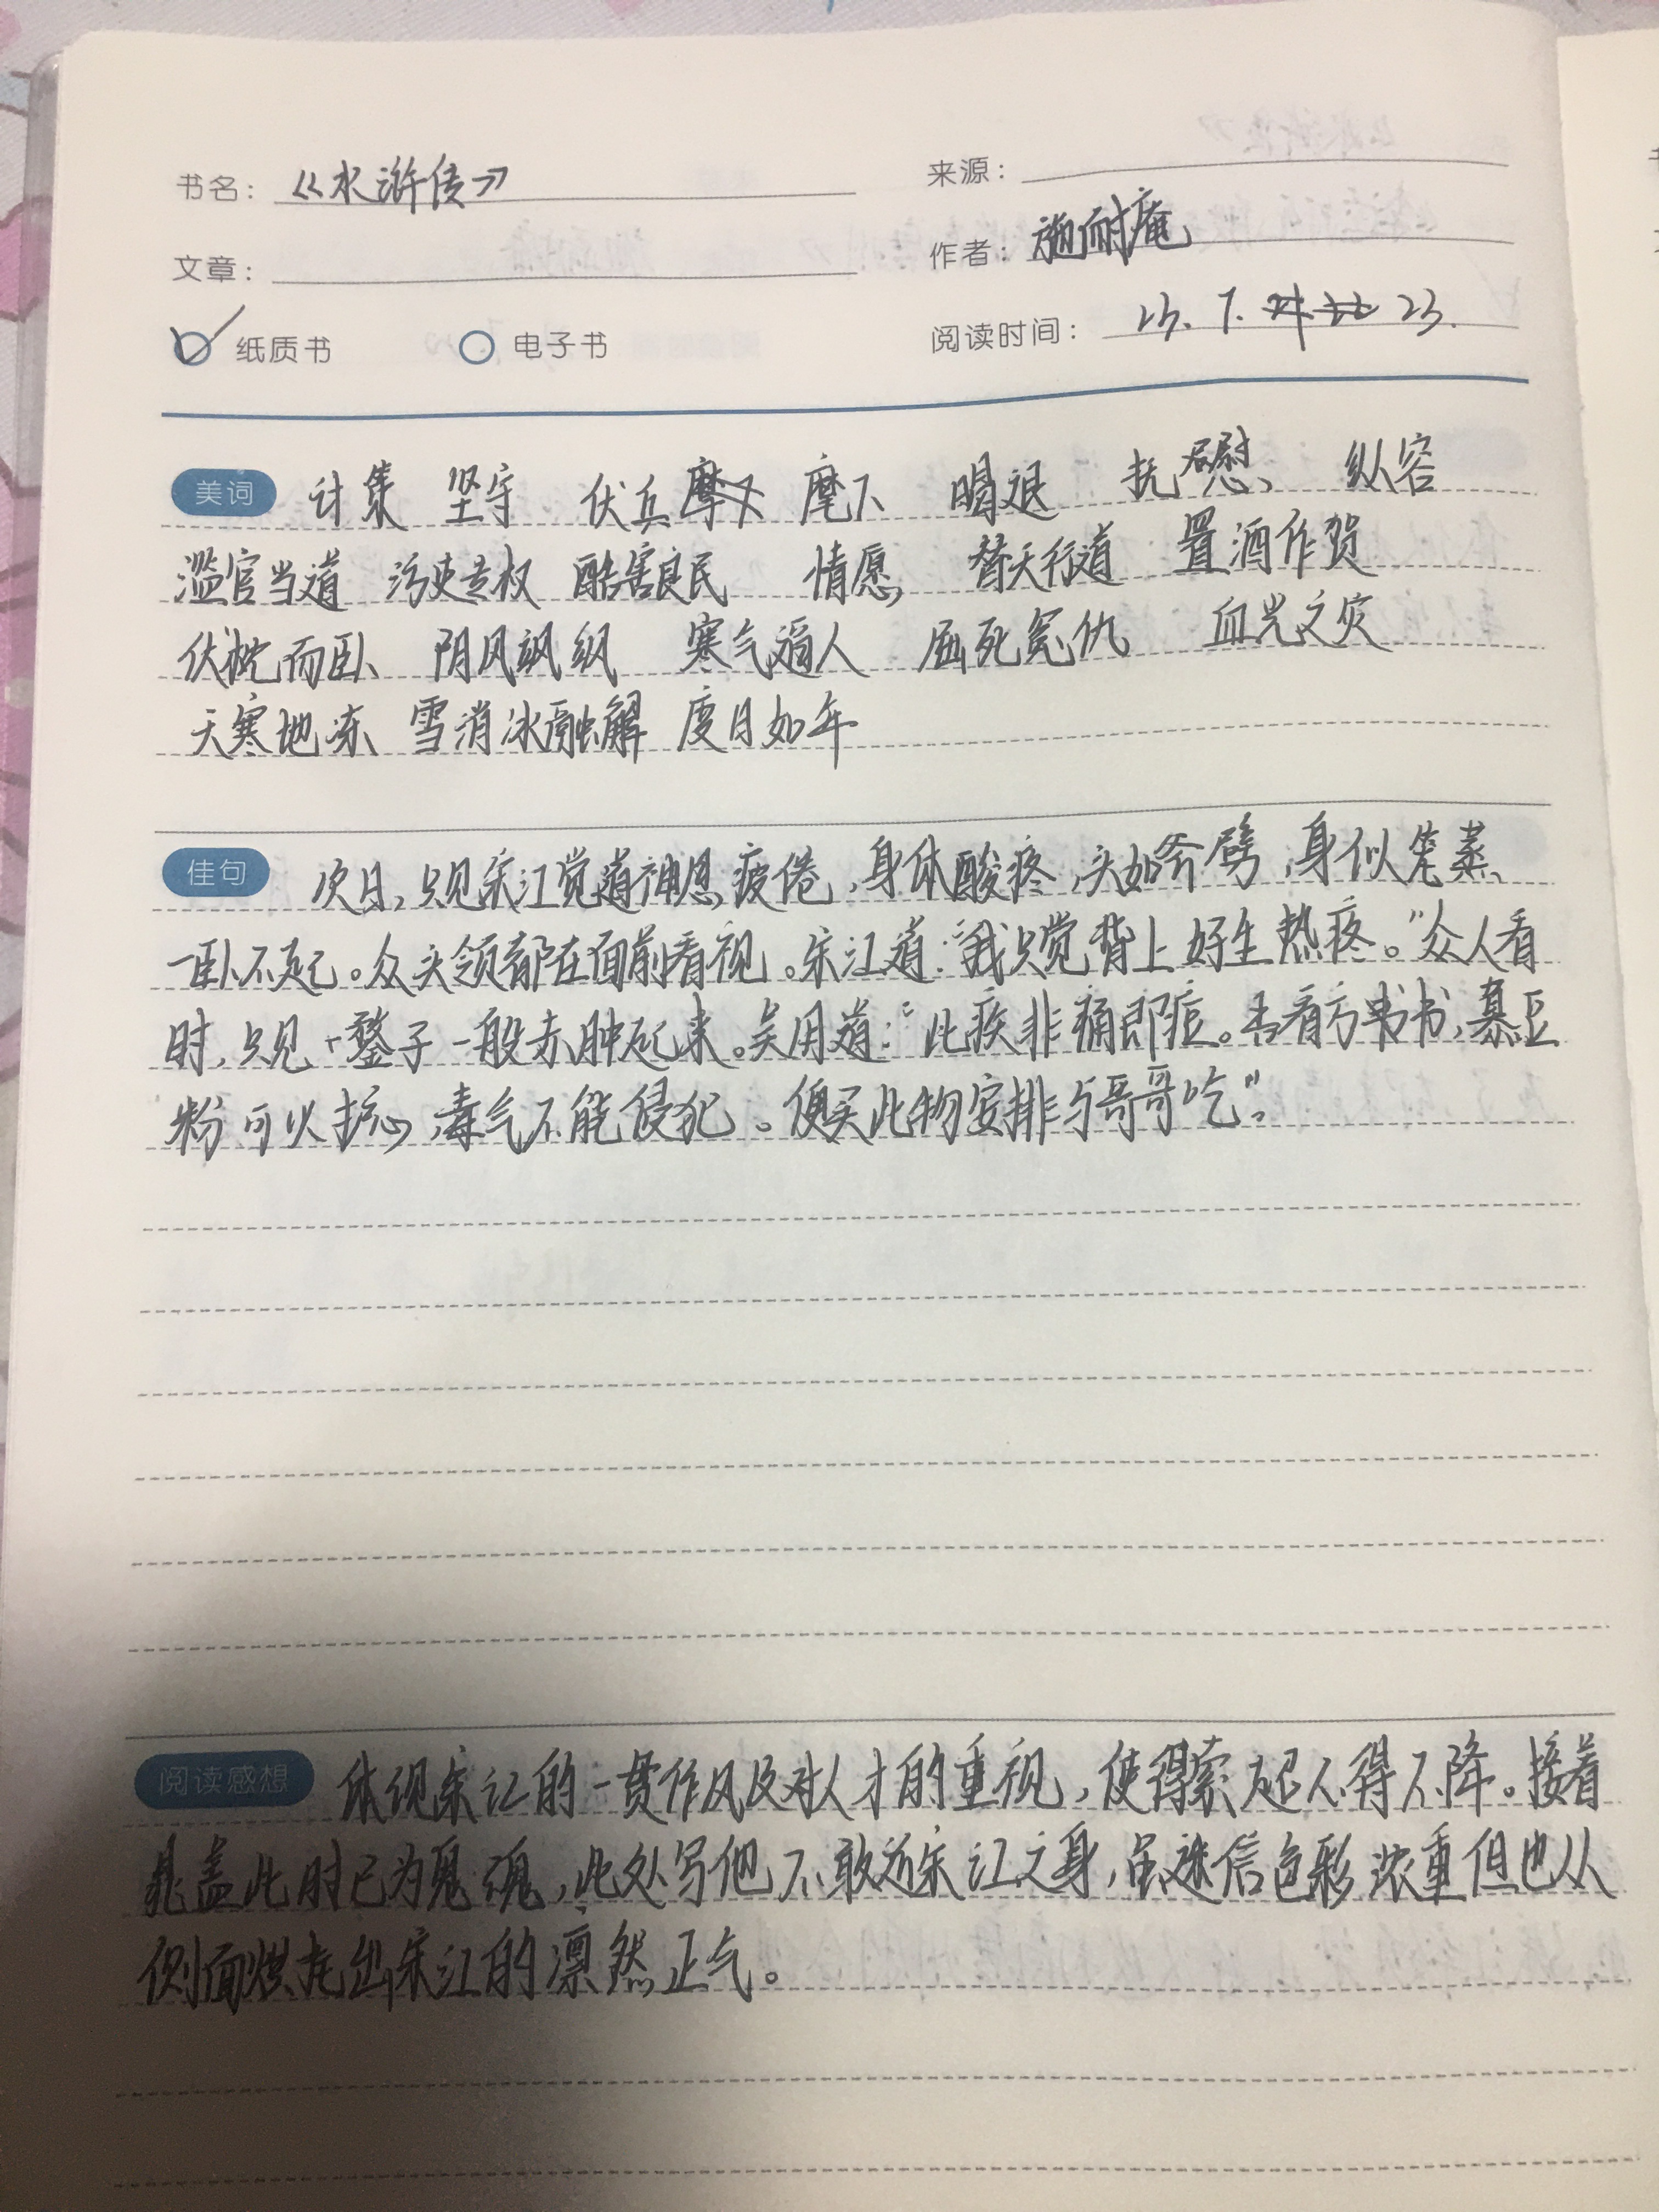 书名： 《水浒传》
来源：
文章：
作者： 施耐庵
纸质书 电子书
阅读时间： 23. 7. 23.
美词 计策 坚守 伏兵 麾下 喝退 抚慰 纵容
滥官当道 污吏专权 酷害良民 情愿 替天行道 置酒作贺
伏枕而卧 阴风飒飒 寒气逼人 屈死冤仇 血光之灾
天寒地冻 雪消冰融解 度日如年
佳句 次日，只见宋江觉道神思疲倦，身体酸疼，头如斧劈，身似笼蒸，
一卧不起。众头领都在面前看视。宋江道：“我只觉背上好生热疼。”众人看
时，只见鏊子一般赤肿起来。吴用道：“此疾非痈即疽。吾看方书，绿豆
粉可以护心，毒气不能侵犯。便买此物安排与哥哥吃”。
阅读感想 体现宋江的一贯作风及对人才的重视，使得索超不得不降。接着
晁盖此时已为鬼魂，此处写他不敢近宋江之身，虽迷信色彩浓重但也从
侧面烘托出宋江的凛然正气。